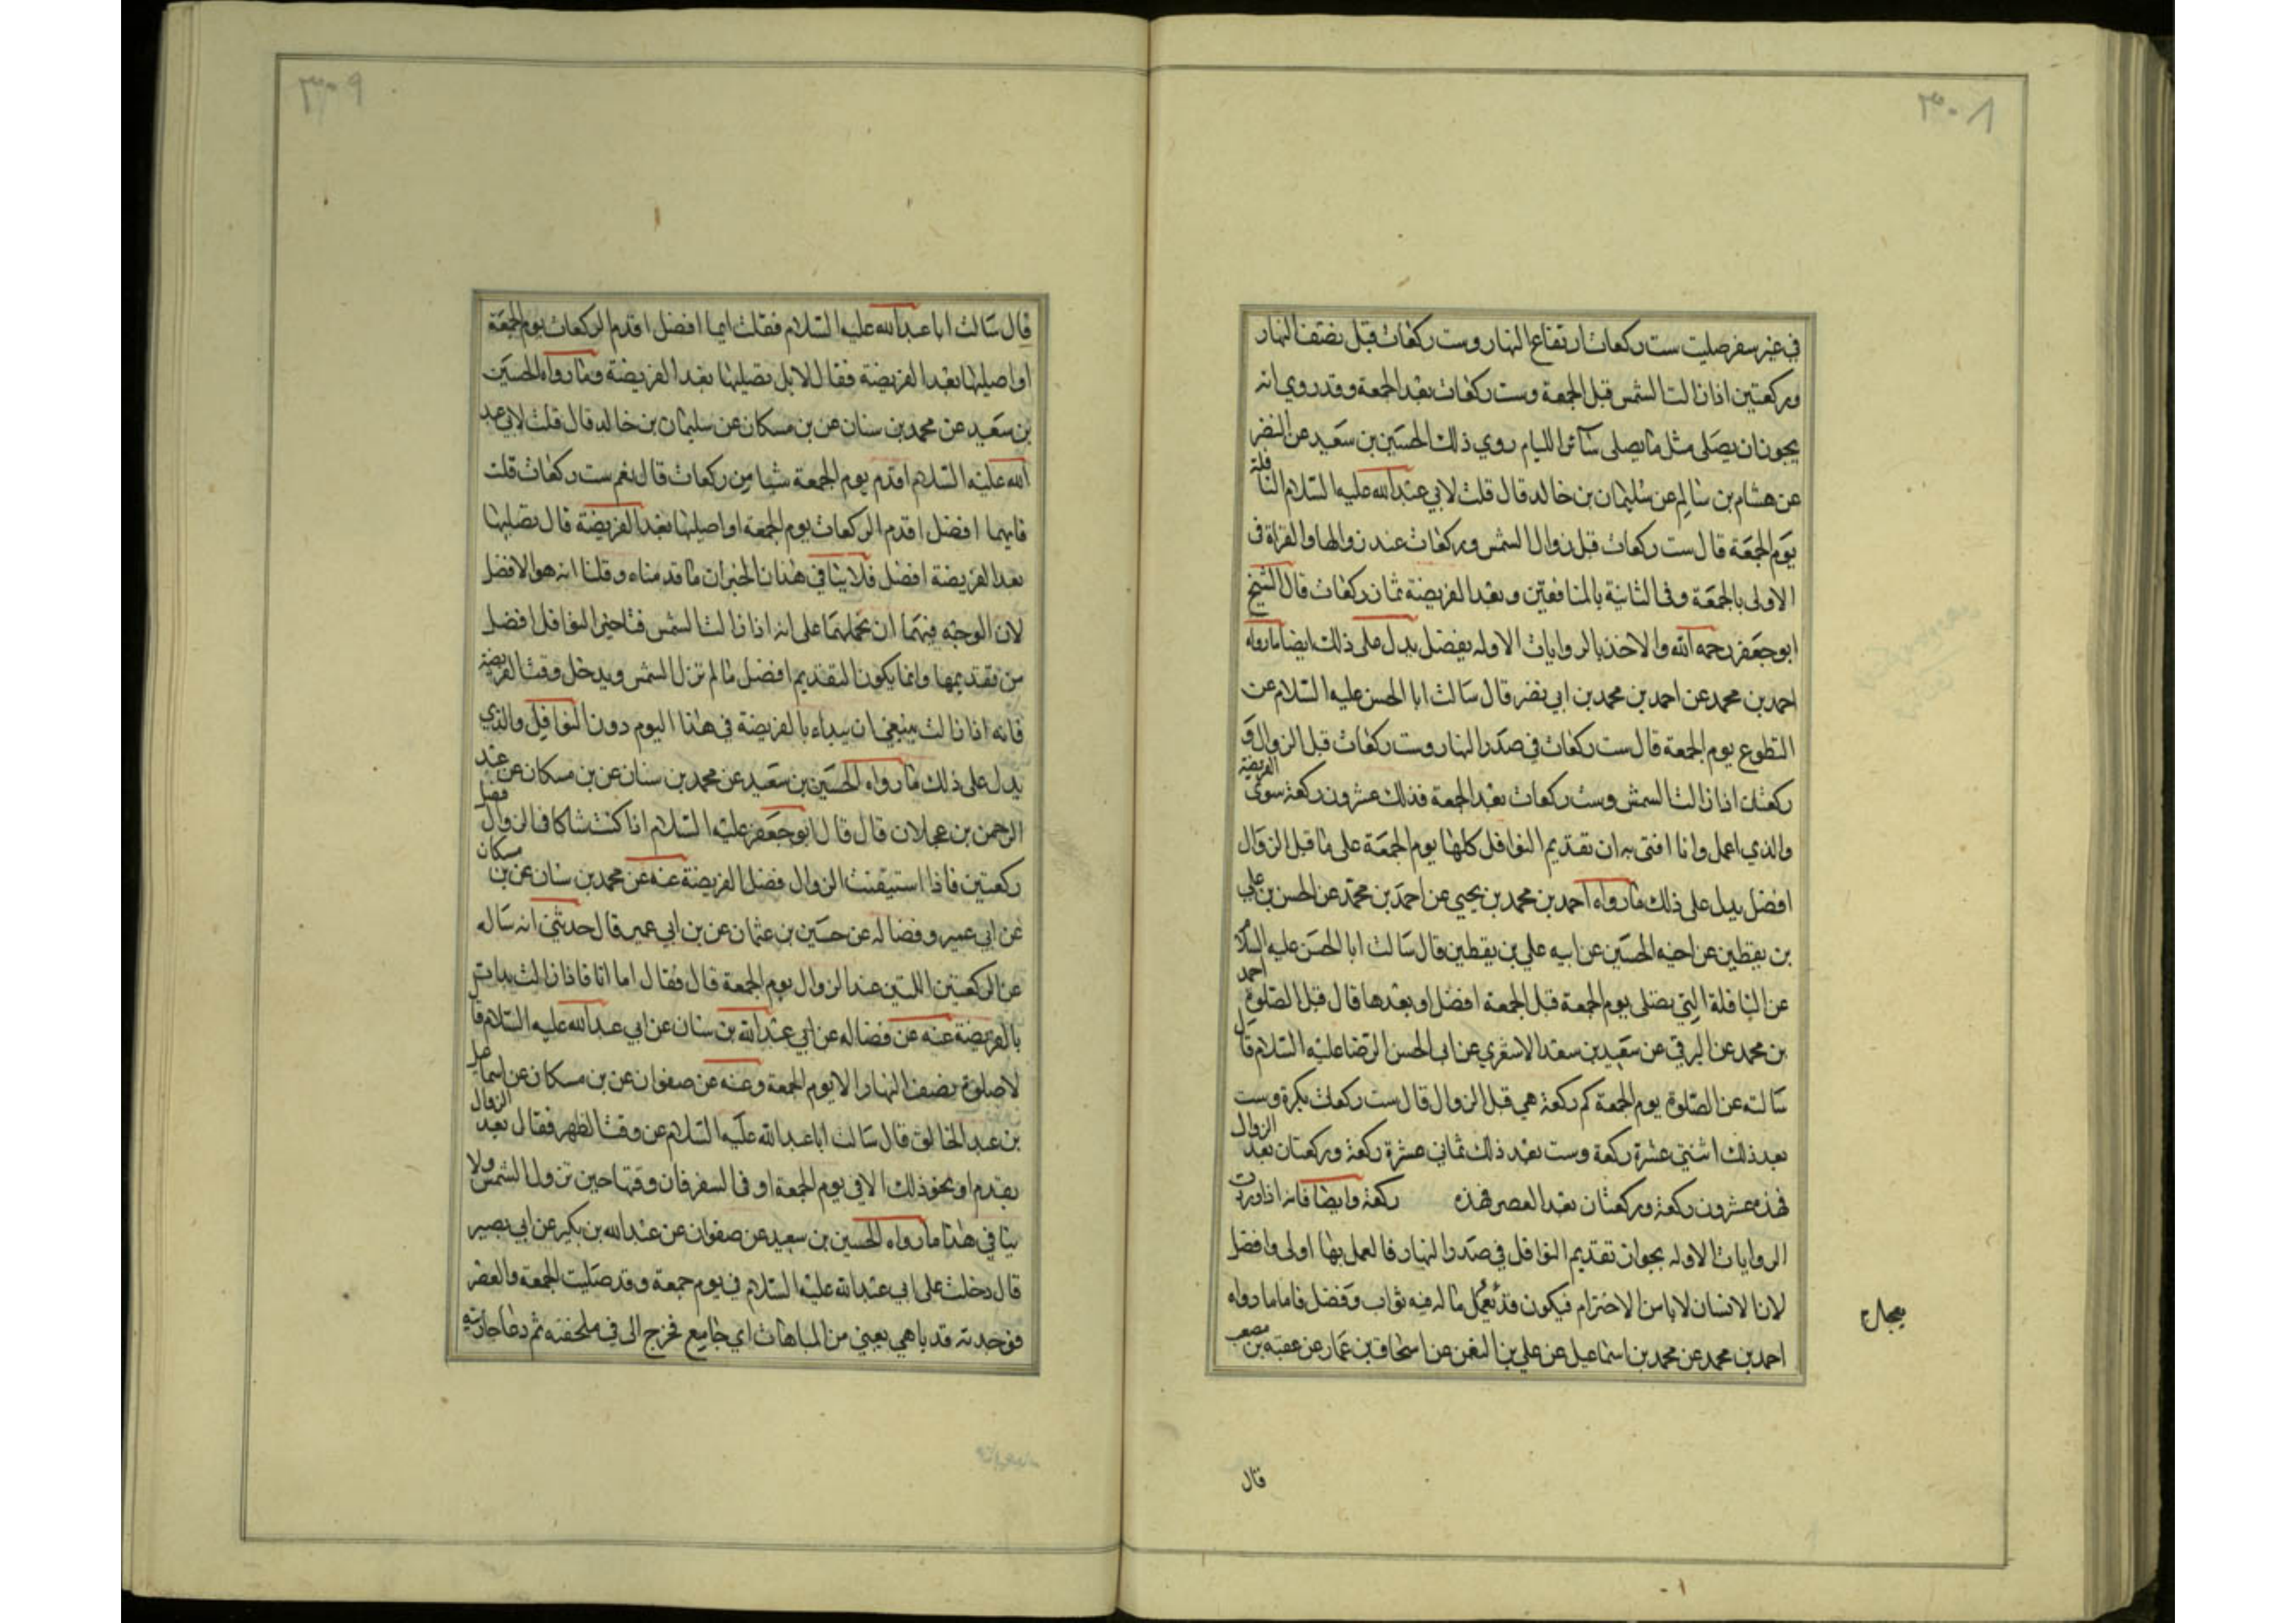 ٣٠٨
في غير سفر صليت ست ركعات ارتفاع النهار وست ركعات قبل نصف النهار
وركعتين اذا زالت الشمس قبل الجمعة وست ركعات بعد الجمعة وقد روي انه
يجوز ان يصلى مثل ما يصلى سائر الايام روي ذلك الحسين بن سعيد عن النضر
عن هشام بن سالم عن سليمان بن خالد قال قلت لابي عبدالله عليه السلام النافلة
يوم الجمعة قال ست ركعات قبل زوال الشمس وركعات عند زوالها والقراة في
الاولى بالجمعة وفي الثانية بالمنافقين وبعد الفريضة ثمان ركعات قال الشيخ
ابو جعفر رحمه الله والاخذ بالروايات الاوله بفضل يدل على ذلك ايضا ما رواه
احمد بن محمد عن احمد بن محمد بن ابي نضر قال سالت ابا الحسن عليه السلام عن
التطوع يوم الجمعة قال ست ركعات في صدر النهار وست ركعات قبل الزوال و
ركعتان اذا زالت الشمس وست ركعات بعد الجمعة فذلك عشرون ركعة سوى الفريضة
والذي اعمل وانا افتي به ان تقديم النوافل كلها يوم الجمعة على ما قبل الزوال
افضل يدل على ذلك ما رواه احمد بن محمد بن يحيى عن احمد بن محمد عن الحسن بن علي
بن يقطين عن اخيه الحسين عن ابيه علي بن يقطين قال سالت ابا الحسن عليه السلام
عن النافلة التي تصلى يوم الجمعة قبل الجمعة افضل او بعدها قال قبل الصلوة احمد
بن محمد عن البرقي عن سعيد بن سعد الاشعري عن ابي الحسن الرضا عليه السلام قال
سالته عن الصلوة يوم الجمعة كم ركعة هي قبل الزوال قال ست ركعات بكرة وست
بعد ذلك اثنتي عشرة ركعة وست بعد ذلك ثماني عشرة ركعة وركعتان بعد الزوال
فهذه عشرون ركعة وركعتان بعد العصر فهذه ركعة وايضا فانه اذا وردت
الروايات الاوله بجواز تقديم النوافل في صدر النهار فالعمل بها اولى وافضل
لان الانسان لا يامن الاخترام فيكون قد تعجل ما له فيه ثواب وفضل فاما ما رواه
احمد بن محمد عن محمد بن اسماعيل عن علي بن النعمن عن اسحاق بن عمار عن عقبه بن مصعب
قال
٣٠٩
قال سالت ابا عبدالله عليه السلام فقلت ايما افضل اقدم الركعات يوم الجمعة
او اصليها بعد الفريضة فقال لا بل تصليها بعد الفريضة وما رواه الحسين
بن سعيد عن محمد بن سنان عن بن مسكان عن سليمان بن خالد قال قلت لابي عبد
الله عليه السلام اقدم يوم الجمعة شيئا من ركعات قال نعم ست ركعات قلت
فايهما افضل اقدم الركعات يوم الجمعة او اصليها بعد الفريضة قال تصليها
بعد الفريضة افضل فلا ينافي هذان الخبران ما قدمناه وقلنا انه هو الافضل
لان الوجه فيهما ان نحملهما على انه اذا زالت الشمس فتاخير النوافل افضل
من تقديمها وانما يكون التقديم افضل ما لم تزل الشمس ويدخل وقت الفريضة
فانه اذا زالت ينبغي ان يبداء بالفريضة في هذا اليوم دون النوافل والذي
يدل على ذلك ما رواه الحسين بن سعيد عن محمد بن سنان عن بن مسكان عن عبد
الرحمن بن عجلان قال قال ابو جعفر عليه السلام اذا كنت شاكا في الزوال فصل
ركعتين فاذا استيقنت الزوال فصل الفريضة عنه عن محمد بن سنان عن بن مسكان
عن ابي عمير وفضاله عن حسين بن عثمان عن بن ابي عمير قال حدثني انه ساله
عن الركعتين اللتين عند الزوال يوم الجمعة قال فقال اما انا فاذا زالت بدات
بالفريضة عنه عن فضاله عن ابي عبدالله بن سنان عن ابي عبدالله عليه السلام قال
لا صلوة نصف النهار الا يوم الجمعة وعنه عن صفوان عن بن مسكان عن اسماعيل
بن عبد الخالق قال سالت ابا عبدالله عليه السلام عن وقت الظهر فقال بعد الزوال
بقدم او نحو ذلك الا في يوم الجمعة او في السفر فان وقتها حين تزول الشمس ولا
ينافي هذا ما رواه الحسين بن سعيد عن صفوان عن عبدالله بن بكير عن ابي بصير
قال دخلت على ابي عبدالله عليه السلام في يوم جمعة وقد صليت الجمعة والعصر
فوجدته قد باهى يعني من المباهات اي جامع فخرج الى في ملحفته ثم دعا جاريته